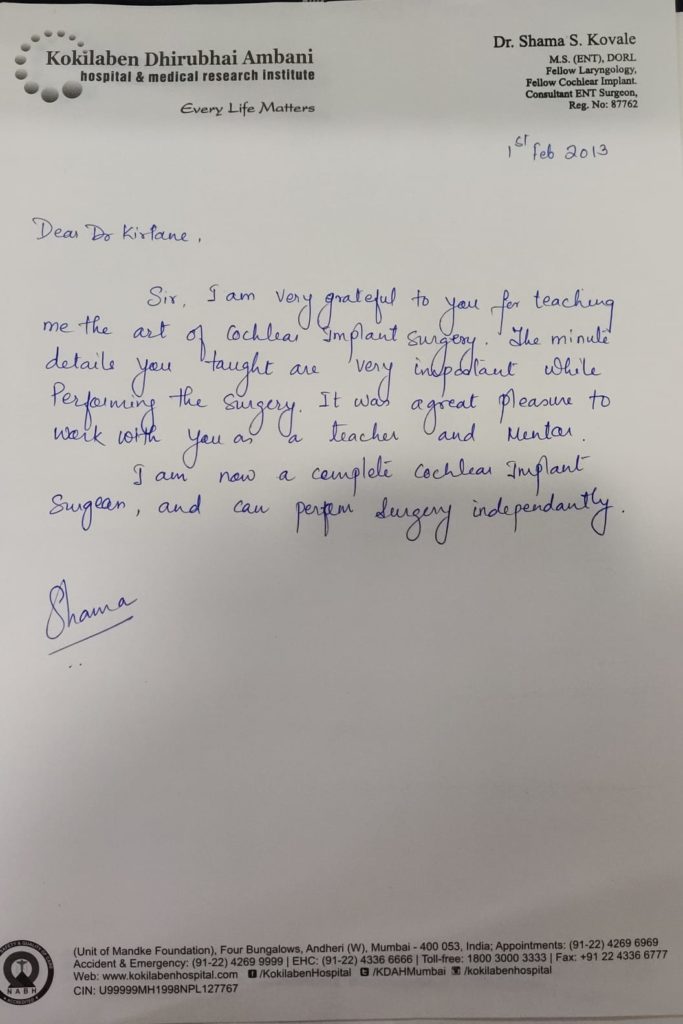 Kokilaben Dhirubhai Ambani
hospital & medical research institute
Every Life Matters
Dr. Shama S. Kovale
M.S. (ENT), DORL
Fellow Laryngology,
Fellow Cochlear Implant.
Consultant ENT Surgeon,
Reg. No: 87762
1st Feb 2013
Dear Dr Kirtane,
Sir, I am very grateful to you for teaching
me the art of Cochlear Implant Surgery. The minute
details you taught are very important while
Performing the Surgery. It was a great pleasure to
work with you as a teacher and Mentor.
I am now a complete Cochlear Implant
Surgeon, and can perform Surgery independantly.
Shama
(Unit of Mandke Foundation), Four Bungalows, Andheri (W), Mumbai - 400 053, India; Appointments: (91-22) 4269 6969
Accident & Emergency: (91-22) 4269 9999 | EHC: (91-22) 4336 6666 | Toll-free: 1800 3000 3333 | Fax: +91 22 4336 6777
Web: www.kokilabenhospital.com /KokilabenHospital /KDAHMumbai /kokilabenhospital
CIN: U99999MH1998NPL127767
NABH